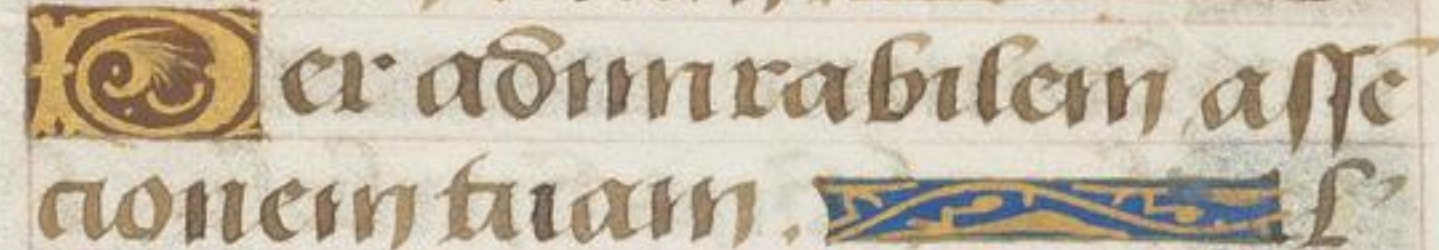 Per admirabilem assē
cionem tuam. l'